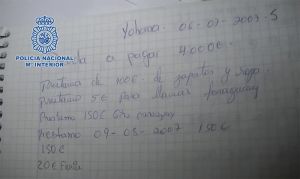 Yohana. 06-07-2007-S
a pagar 4000€.
POLICIA NACIONAL
M. INTERIOR
Prestamo de 100€ de zapatos y ropa
prestamo 5€ para llamar paraguay
Prestamo 150€ Giro paraguay
prestamo 09-08-2007 150€
150€
20€